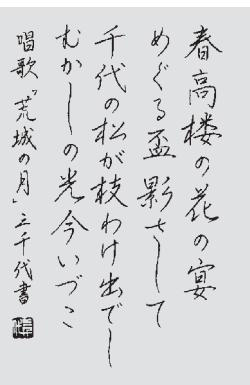 春高楼の花の宴
めぐる盃影さして
千代の松が枝わけ出でし
むかしの光今いづこ
唱歌「荒城の月」三千代書